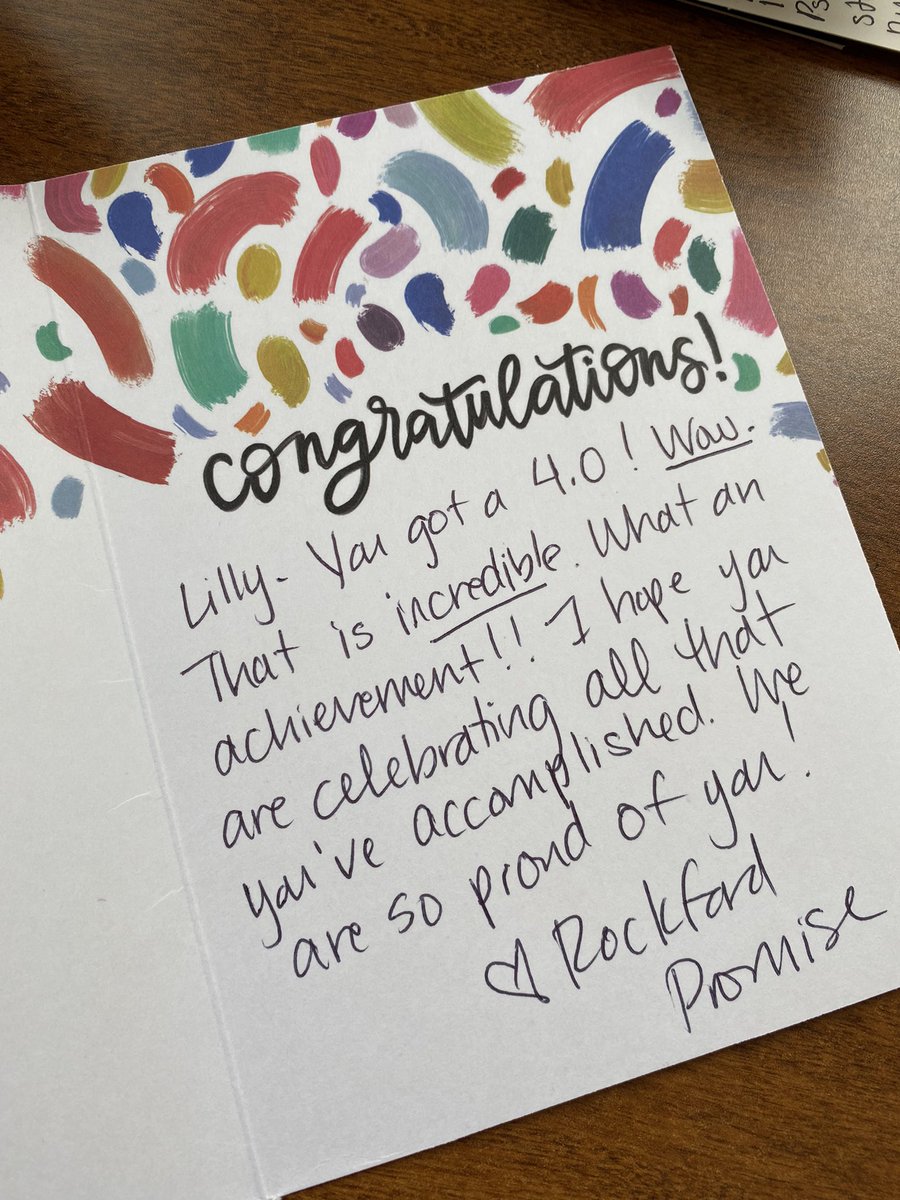 congratulations!
Lilly- You got a 4.0! Wow.
That is incredible. What an
achievement!! I hope you
are celebrating all that
you've accomplished. We
are so proud of you!
♡ Rockford
Promise